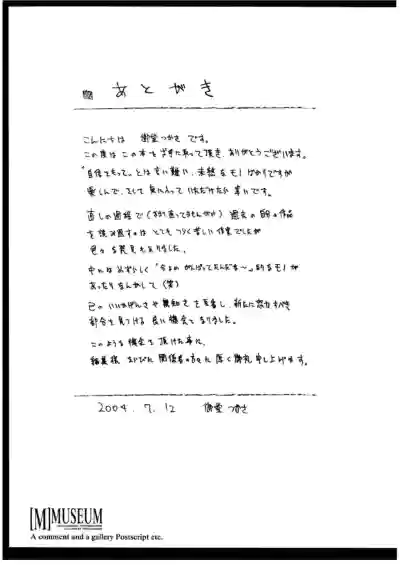 あとがき
こんにちは 御堂つかさ です。
この度は この本を お手に取って頂き、ありがとうございます。
"自信をもって"とは言い難い、未熟なモノばかりですが
楽しんで、そして 気に入って いただけたら 幸いです。
直しの過程で(あまり直ってませんが) 過去の自分の作品
を読み返すのは とても つらく苦しい 作業でしたが
色々な発見もありました。
中には めずらしく 「今より がんばってたんだな〜」的なモノが
あったりなんかして(笑)
己の いいかげんさや 無知さ を反省し、新たに努力すべき
部分を見つける 良い機会と なりました。
このような 機会を 頂けた事に、
編集様、ならびに 関係者の方々に 厚く御礼 申し上げます。
2004. 7. 12 御堂 つかさ
[M]MUSEUM
A comment and a gallery Postscript etc.